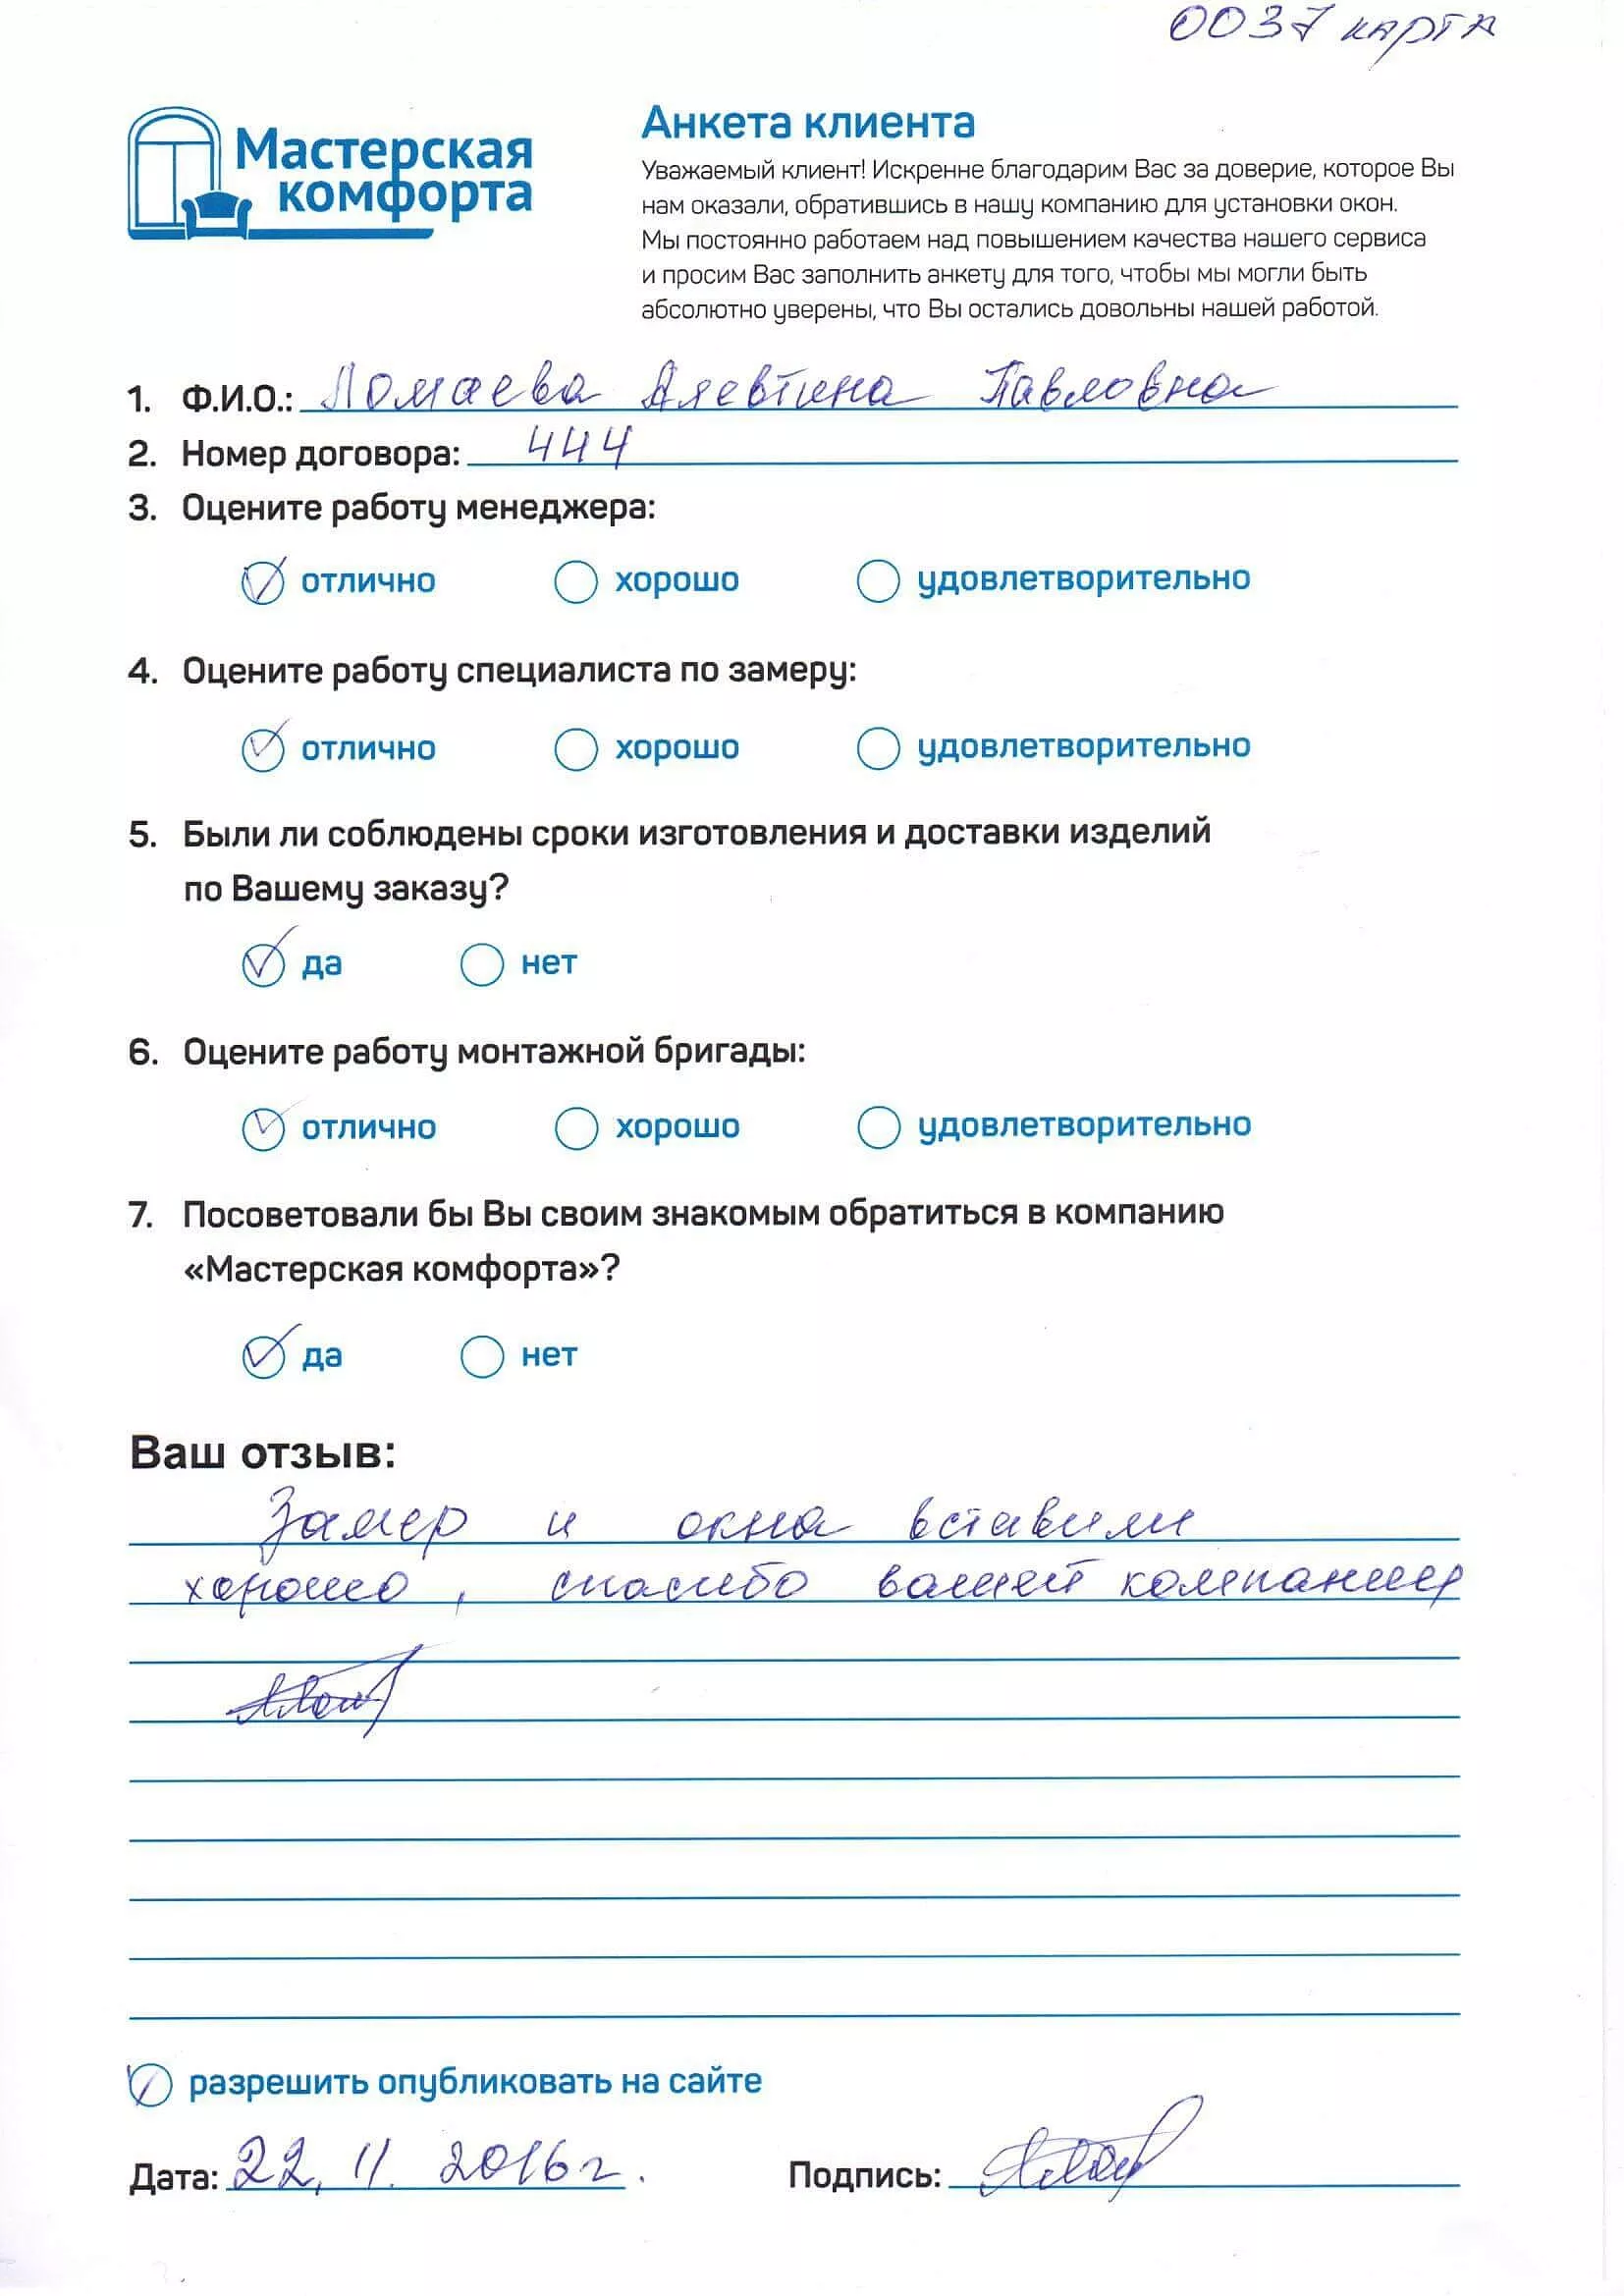 0037 карта
Мастерская
комфорта
Анкета клиента
Уважаемый клиент! Искренне благодарим Вас за доверие, которое Вы
нам оказали, обратившись в нашу компанию для установки окон.
Мы постоянно работаем над повышением качества нашего сервиса
и просим Вас заполнить анкету для того, чтобы мы могли быть
абсолютно уверены, что Вы остались довольны нашей работой.
1. Ф.И.О.: Ломаева Алевтина Павловна
2. Номер договора: 444
3. Оцените работу менеджера:
отлично хорошо удовлетворительно
4. Оцените работу специалиста по замеру:
отлично хорошо удовлетворительно
5. Были ли соблюдены сроки изготовления и доставки изделий
по Вашему заказу?
да нет
6. Оцените работу монтажной бригады:
отлично хорошо удовлетворительно
7. Посоветовали бы Вы своим знакомым обратиться в компанию
«Мастерская комфорта»?
да нет
Ваш отзыв:
Замер и окна вставили
хорошо, спасибо вашей
разрешить опубликовать на сайте
Дата: 22. 11. 2016 г. Подпись: